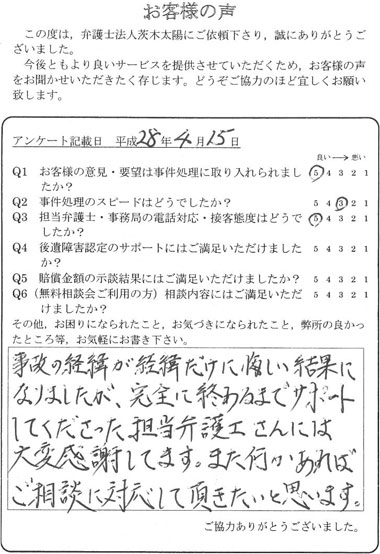 お客様の声
この度は，弁護士法人茨木太陽にご依頼下さり，誠にありがとうございました。
今後ともより良いサービスを提供させていただくため，お客様の声をお聞かせいただきたく存じます。どうぞご協力のほど宜しくお願い致します。
アンケート記載日　平成28年4月15日
良い→悪い
Q1　お客様の意見・要望は事件処理に取り入れられましたか？　5 4 3 2 1
Q2　事件処理のスピードはどうでしたか？　5 4 3 2 1
Q3　担当弁護士・事務局の電話対応・接客態度はどうでしたか？　5 4 3 2 1
Q4　後遺障害認定のサポートにはご満足いただけましたか？　5 4 3 2 1
Q5　賠償金額の示談結果にはご満足いただけましたか？　5 4 3 2 1
Q6（無料相談会ご利用の方）相談内容にはご満足いただけましたか？　5 4 3 2 1
その他，お困りになられたこと，お気づきになられたこと，弊所の良かったところ等，お気軽にお書き下さい。
事故の経緯が経緯だけに悔しい結果に
なりましたが、完全に終わるまでサポート
してくださった担当弁護士さんには
大変感謝してます。また何かあれば
ご相談に対応して頂きたいと思います。
ご協力ありがとうございました。